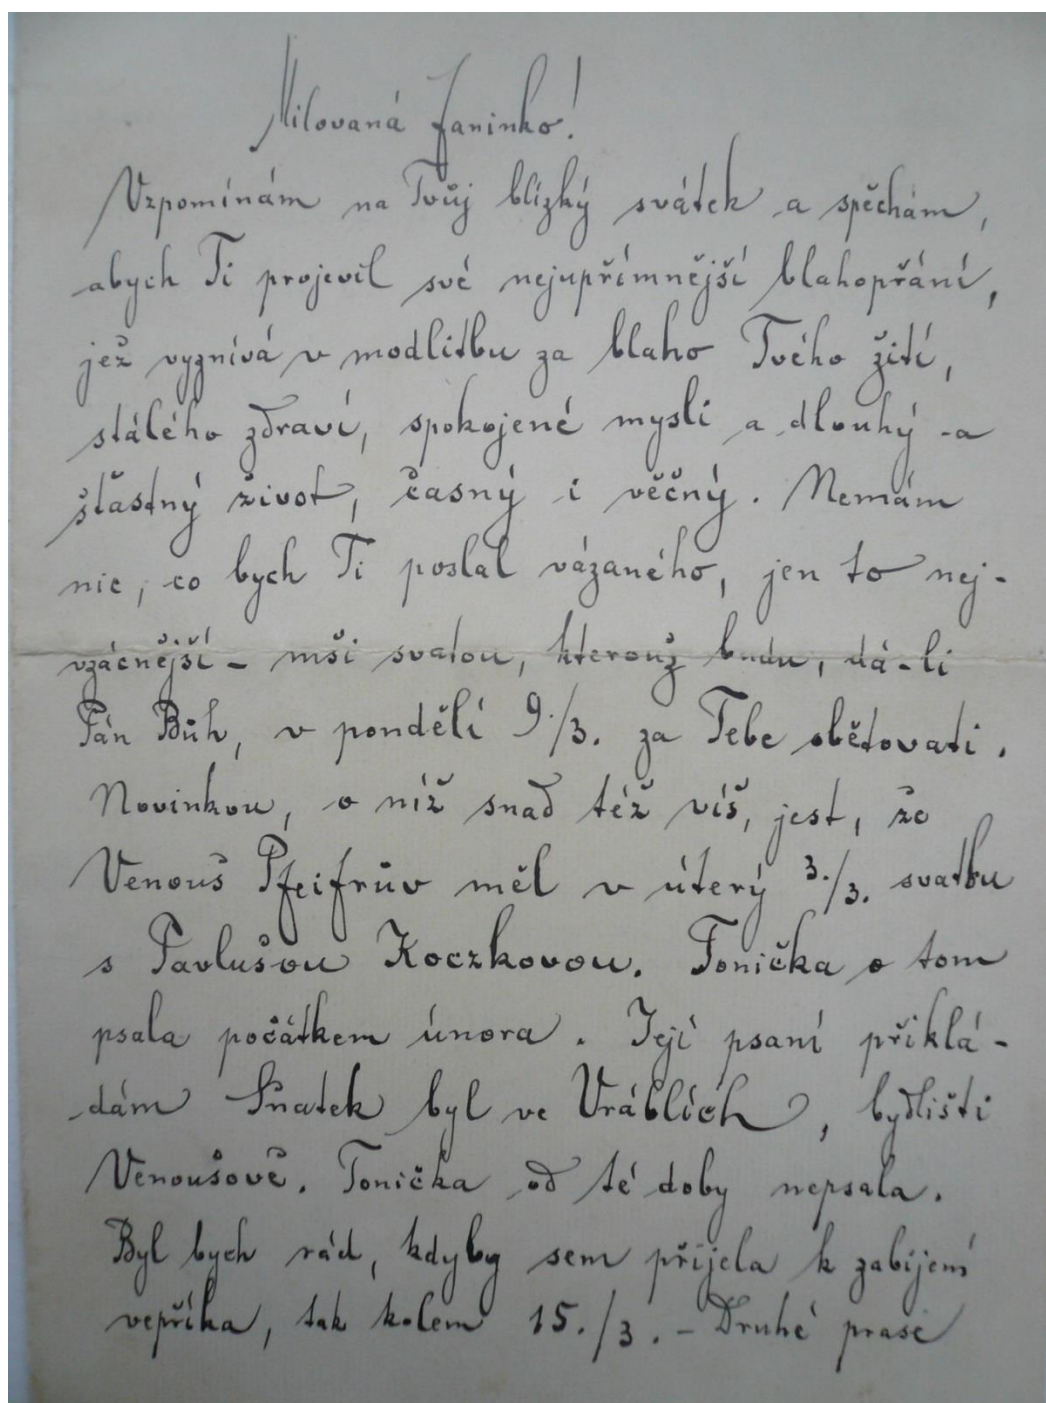 Milovaná Faninko!
Vzpomínám na Tvůj blízký svátek a spěchám,
abych Ti projevil své nejupřímnější blahopřání,
jež vyznívá v modlitbu za blaho Tvého žití,
stálého zdraví, spokojené mysli a dlouhý a
šťastný život, časný i věčný. Nemám
nic, co bych Ti poslal vázaného, jen to nej-
vzácnější - mši svatou, kterouž budu, dá-li
Pán Bůh, v pondělí 9./3. za Tebe obětovati.
Novinkou, o níž snad též víš, jest, že
Venouš Pfeifrův měl v úterý 3./3. svatbu
s Pavlušou Koczkovou. Tonička o tom
psala počátkem února. Její psaní přiklá-
dám Sňatek byl ve Vráblích, bydlišti
Venoušově. Tonička od té doby nepsala.
Byl bych rád, kdyby sem přijela k zabíjení
vepříka, tak kolem 15./3. - Druhé prase